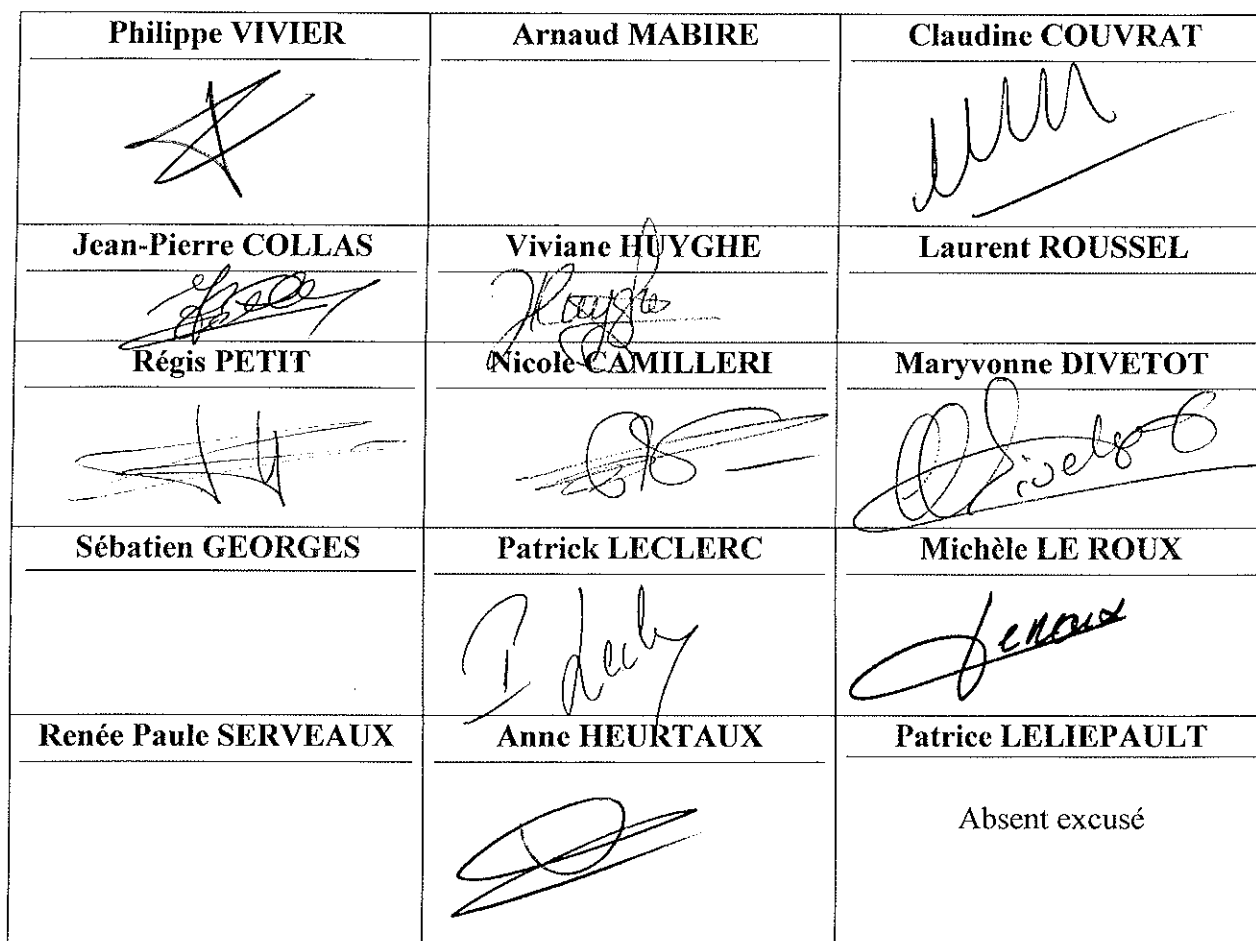 Philippe VIVIER
Arnaud MABIRE
Claudine COUVRAT
Jean-Pierre COLLAS
Viviane HUYGHE
Laurent ROUSSEL
Régis PETIT
Nicole CAMILLERI
Maryvonne DIVETOT
Sébatien GEORGES
Patrick LECLERC
Michèle LE ROUX
Renée Paule SERVEAUX
Anne HEURTAUX
Patrice LELIEPAULT
Absent excusé